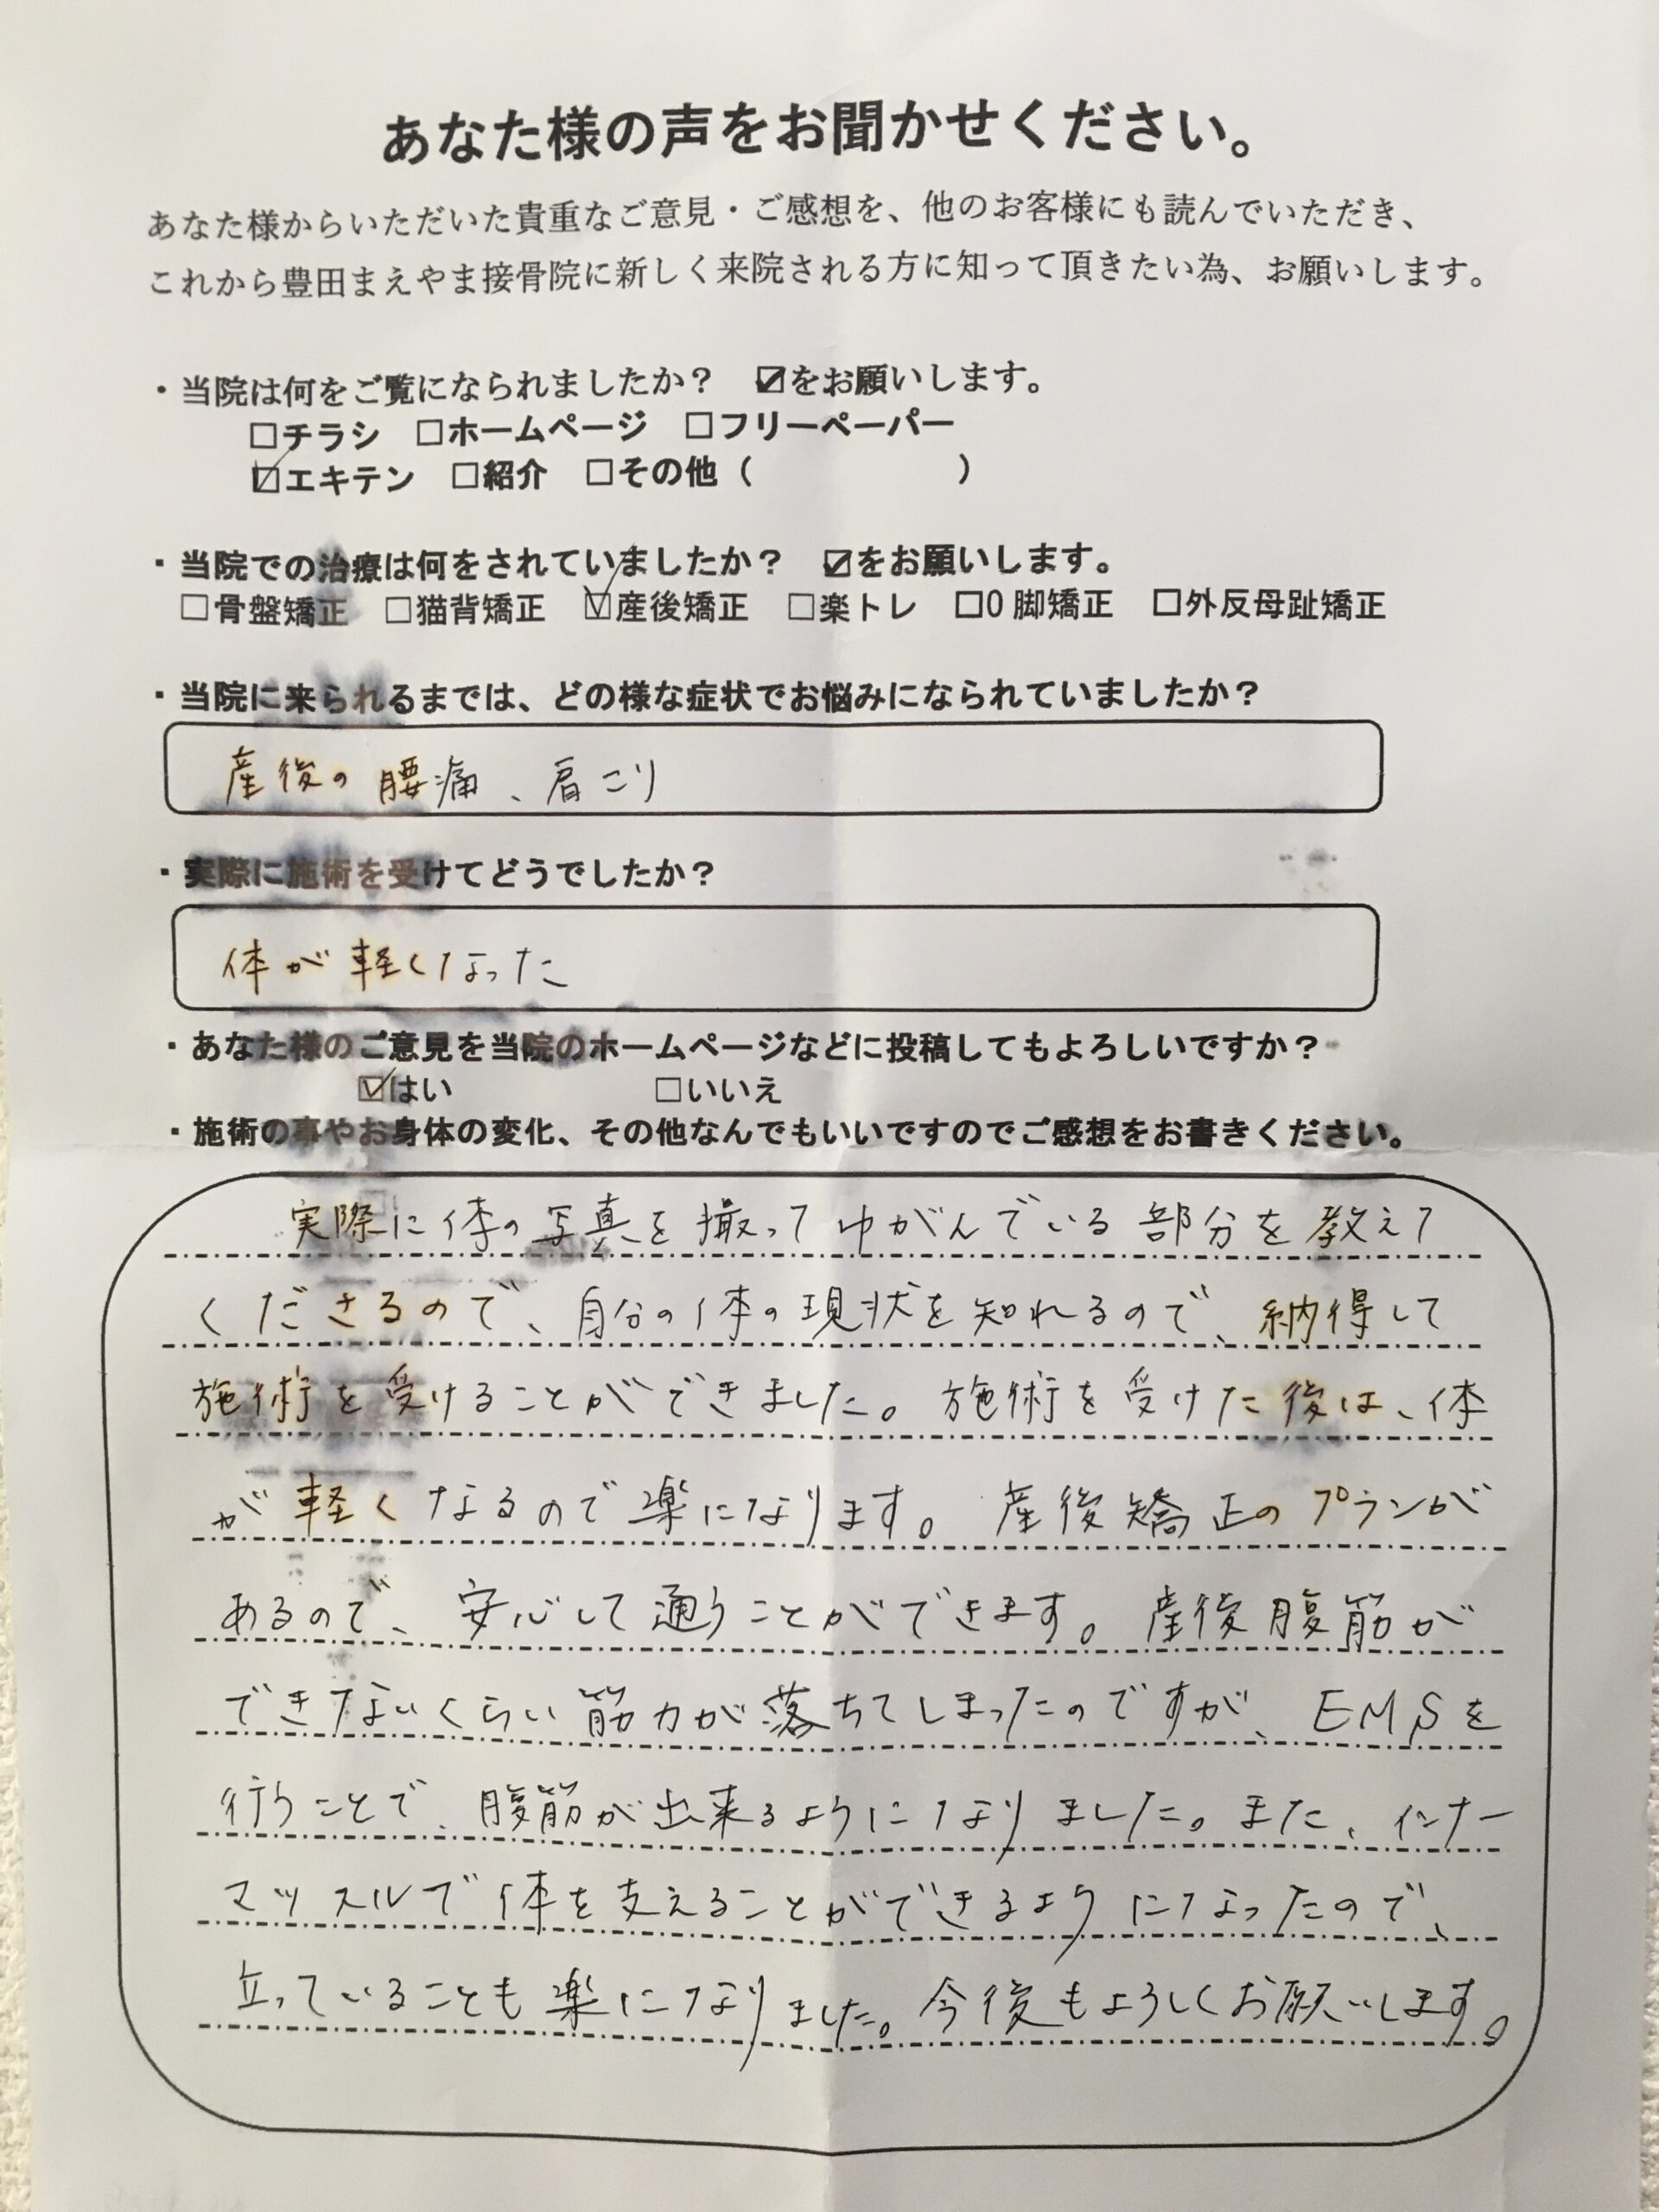 あなた様の声をお聞かせください。
あなた様からいただいた貴重なご意見・ご感想を、他のお客様にも読んでいただき、
これから豊田まえやま接骨院に新しく来院される方に知って頂きたい為、お願いします。
・当院は何をご覧になられましたか？　☑をお願いします。
□チラシ　□ホームページ　□フリーペーパー
☑エキテン　□紹介　□その他（　　　　　　）
・当院での治療は何をされていましたか？　☑をお願いします。
□骨盤矯正　□猫背矯正　☑産後矯正　□楽トレ　□O脚矯正　□外反母趾矯正
・当院に来られるまでは、どの様な症状でお悩みになられていましたか？
産後の腰痛、肩こり
・実際に施術を受けてどうでしたか？
体が軽くなった
・あなた様のご意見を当院のホームページなどに投稿してもよろしいですか？
☑はい　　　□いいえ
・施術の事やお身体の変化、その他なんでもいいですのでご感想をお書きください。
実際に体の写真を撮ってゆがんでいる部分を教えて
くださるので、自分の体の現状を知れるので、納得して
施術を受けることができました。施術を受けた後は、体
が軽くなるので楽になります。産後矯正のプランが
あるので、安心して通うことができます。産後腹筋が
できないくらい筋力が落ちてしまったのですが、EMSを
行うことで、腹筋が出来るようになりました。また、インナー
マッスルで体を支えることができるようになったので、
立っていることも楽になりました。今後もよろしくお願いします。